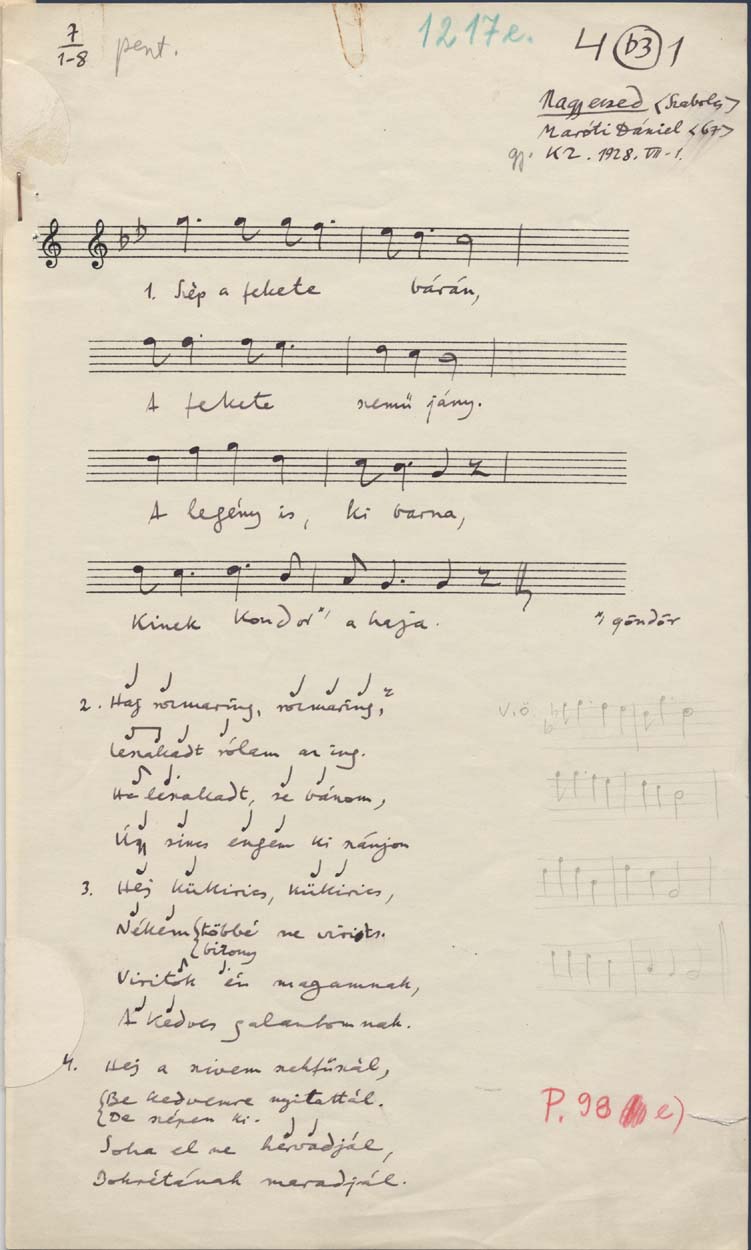 7
1-8
pent.
1217e.
4 b3 1
Nagyecsed (Szabolcs)
Maróti Dániel (67)
gy. KZ. 1928. VII-1.
1. Szép a fekete bárán,
A fekete szemü jány.
A legény is, ki barna,
Kinek kondor*) a haja.
*) göndör
2. Haj rozmaring, rozmaring,
Leszakadt rólam az ing.
Ha leszakadt, se bánom,
Úgy sincs engem ki szánjon
3. Hej kükirics, kükirics,
Nékem {többé ne viríts.
{bizony
Virítok én magamnak,
A kedves galambomnak.
4. Hej a szivem szekfűszál,
{Be kedvemre nyitottál.
{De szépen ki-
Soha el ne hervadjál,
Bokrétának maradjál.
V.ö.
P. 98 e)